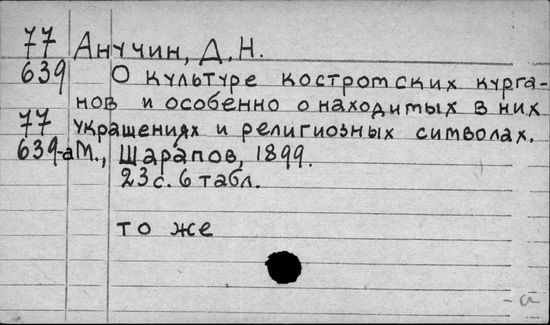 77 Анучин, Д.Н.
639 О культуре костромских курга-
нов и особенно о находимых в них
77 украшениях и религиозных символах.
639-а М., Шарапов, 1899.
23 с. 6 табл.
то же
- а